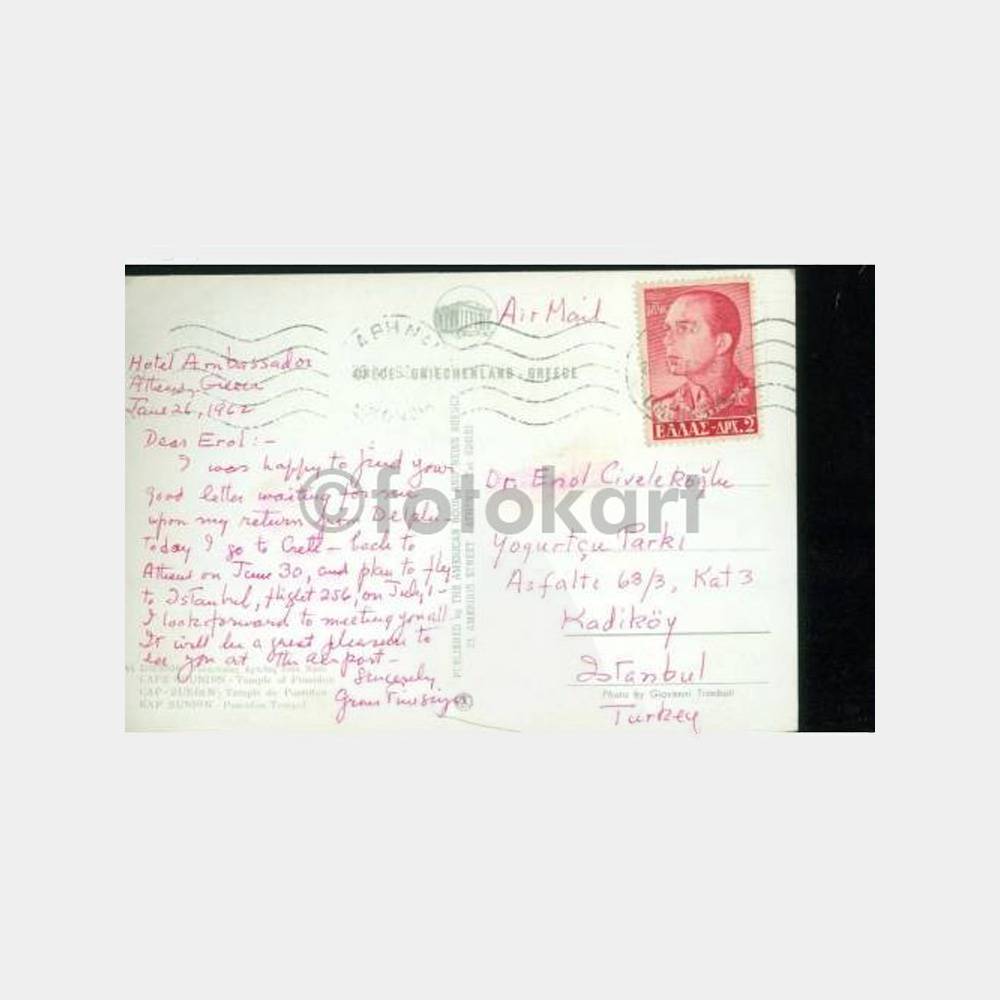 Air Mail
ΕΛΛΑΣ-ΔΡΧ.2
GRIECHENLAND - GREECE
Hotel Ambassador
Athens, Greece
June 26, 1962
Dear Erol:-
I was happy to find your
good letter waiting for me
upon my return from Delphi-
Today I go to Crete - back to
Athens on June 30, and plan to fly
to Istanbul, flight 256, on July 1-
I look forward to meeting you all.
It will be a great pleasure to
see you at the airport-
Sincerely
CAPE SUNION - Temple of Poseidon
CAP-SUNION - Temple de
KAP SUNION - Poseidon Tempel
PUBLISHED by THE AMERICAN BOOK AND NEWS AGENCY
23, AMERIKIS STREET ATHENS
Dr. Erol Civelekoğlu
Yogurtçu Parkı
Asfaltı 63/3, Kat 3
Kadiköy
Istanbul
Photo by Giovanni Trimboli
Turkey
©fotokart